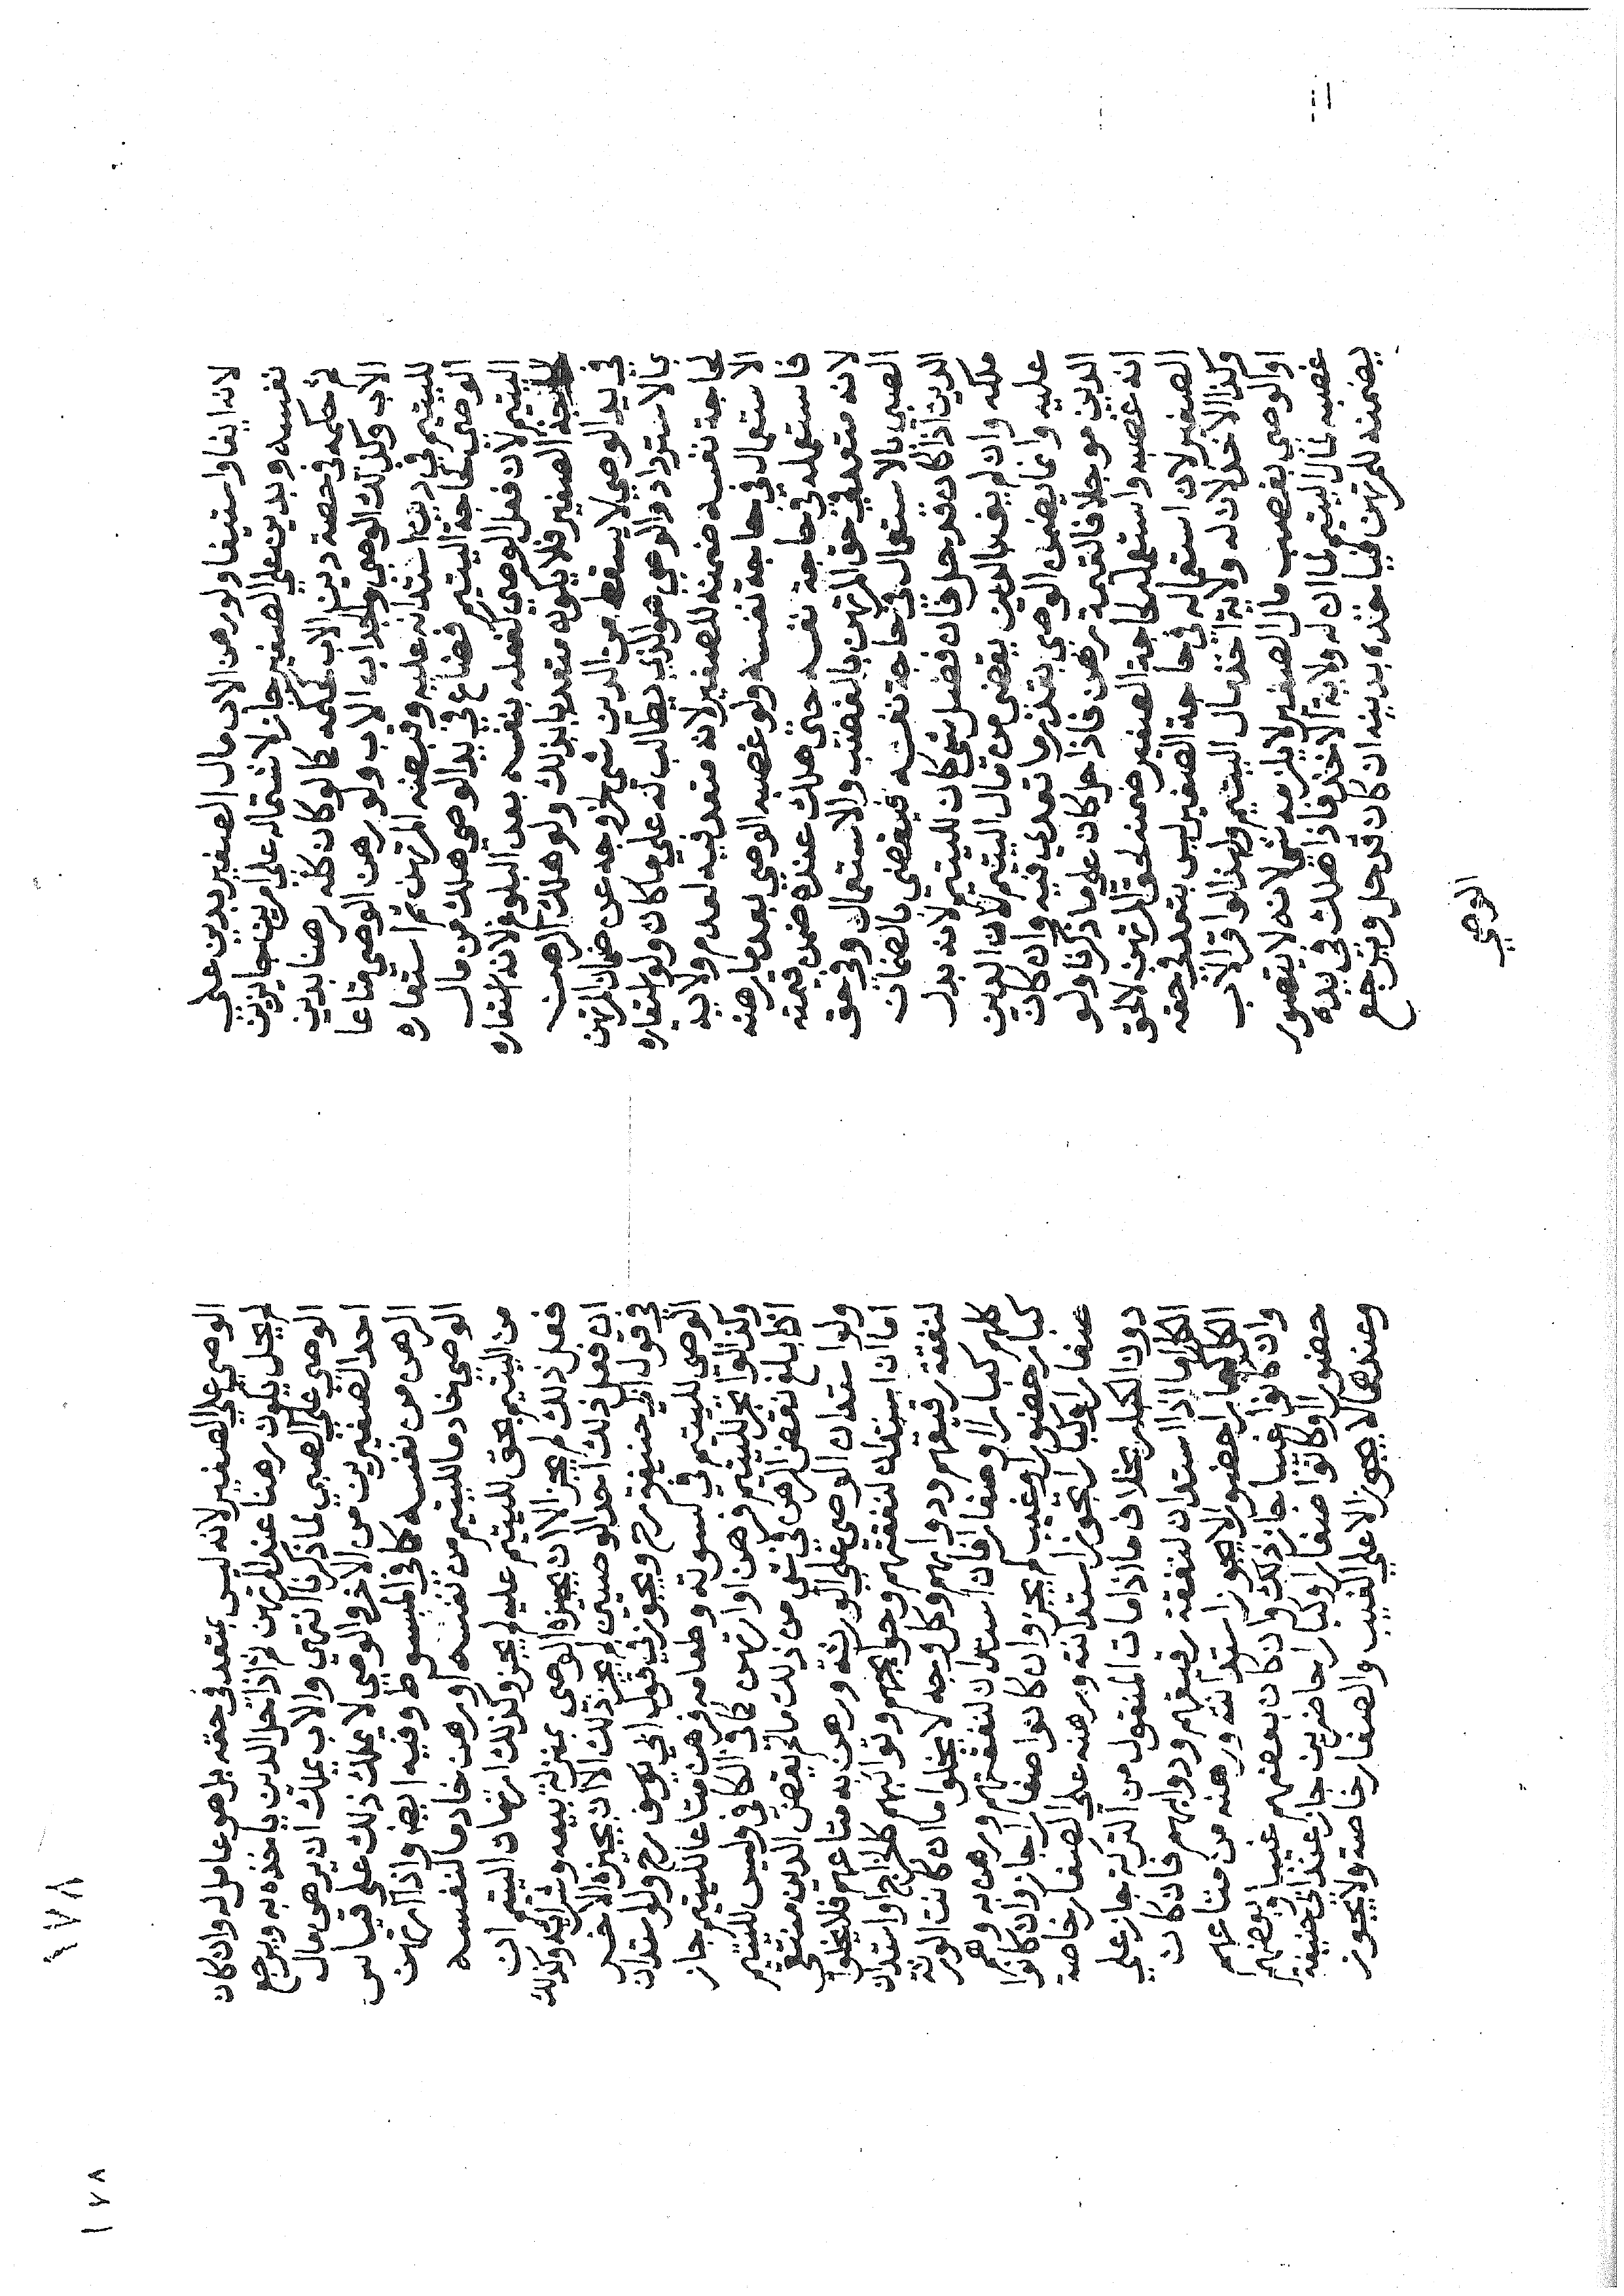 لانه ايفا واستيفا ولو رهن الاب مال الصغير بدين علي
نفسه وبدين علي الصغير جاز لاشتماله علي امرين جايزين
ثم حكمه في حصة دين الاب كحكمه كما لو كان كله رهنا بدين
الاب وكذلك الوصي والجد اب الاب ولو رهن الوصي متاعا
لليتيم في دين استدانه عليه وقبضه المرتهن ثم استعاره
الوصي لحاجة اليتيم فضاع في يد الوصي هلك من مال
اليتيم لان فعل الوصي كفعله بنفسه بعد البلوغ لانه استعاره
لحاجة الصغير فلا يكون متعديا بذلك ولو هلك الرهن
في يد الوصي لا يسقط من الدين شي لخروجه عن ضمان المرتهن
بالاسترداد والوصي هو الذي يطالب به علي ما كان ولو استعاره
لحاجة نفسه ضمنه للصغير لانه متعد فيه لعدم ولاية
الاستعمال في حاجة نفسه ولو غصبه الوصي بعد ما رهنه
فاستعمله في حاجة نفسه حتي هلك عنده ضمن قيمته
لانه متعد في حق المرتهن بالغصب والاستعمال وفي حق
الصبي بالاستعمال في حاجة نفسه فيقضي بالضمان
الدين اذا كان قد حل فان فضل شي كان لليتيم لانه بدل
ملكه وان لم يف بالدين يقضي من مال اليتيم لان الدين
عليه وانما يضمن الوصي بقدر ما تعدي فيه وان كان
الدين موجلا فالقيمة رهن فاذا حل كان علي ما ذكرنا ولو
انه غصبه واستعمله لحاجة الصغير ضمنه لحق المرتهن لا لحق
الصغير لان استعماله في حاجة الصغير ليس بتعد في حقه
وكذا الاخذ لان له ولاية اخذ مال اليتيم ولهذا لو اقر الاب
او الوصي بغصب مال الصغير لا يلزمه شي لانه لا يتصور
غصبه لمال اليتيم لما ان له ولاية الاخذ فاذا هلك في يده
يضمنه للمرتهن فياخذه بدينه ان كان قد حل ويرجع
الوصي
١٧٨
١٧٨
الوصي علي الصغير لانه ليس بمتعد في حقه بل هو عامل له وان كان
لم يحل يكون رهنا عند المرتهن ثم اذا حل الدين ياخذه به ويرجع
الوصي علي الصبي لما ذكرنا انتهي والاب يملك ان يرهن مال
احد الصغيرين من الاخر والوصي لا يملك ذلك علي قياس
الرهن من نفسه كما في المبسوط وفيه ايض واذا ارتهن
الوصي خادما لليتيم من نفسه او رهن خادما لنفسه
من اليتيم بحق لليتيم عليه لم يجز وكذلك ان كان اليتيم ان
فعل ذلك لم يجز الا ان يجيزه الوصي بمنزلة بيعه وشرايه وكذلك
ان فعل ذلك احد الوصيين لم يجز ذلك الا ان يجيزه الاخر
في قول ابي حنيفة ومحمد رح ويجوز في قول ابي يوسف رح ولو استدان
الوصي لليتيم في كسوته وطعامه فرهن متاعا لليتيم جاز
وكذا لو اتجر لليتيم فرهن او ارتهن كما في الكافي وليس لليتيم
اذا بلغ نقض الرهن في شي من ذلك ما لم يقض الدين
ولو استدان الوصي علي الورثة ورهن به متاعهم فلا يخلوا
اما ان استدان لنفقتهم وحوايجهم ونوايبهم كالخراج او استدان
لنفقة رقيقهم ودوابهم وكل وجه لا يخلوا ما ان كانت الورثة
كلهم كبارا او صغارا فان استدان لنفقتهم ورهن به وهم
كبار حضور او غيب لم يجز وان كانوا صغارا جاز وان كانوا
صغارا وكبارا يجوز استدانته ورهنه علي الصغار خاصة
دون الكبار بخلاف ما اذا مات المنقول من التركة جاز علي
الكل اما اذا استدان لنفقة رقيقهم ودوابهم فان كان
الكل كبارا حضورا لا يجوز استدانته ورهنه من متاعهم
وان كانوا غيبا جاز ذلك وان كان بعضهم غيبا وبعضهم
حضورا او كانوا صغارا وكبارا حاضرين جاز عند ابي حنيفة
وعندهما لا يجوز الا علي الغيب والصغار خاصة ولا يجوز